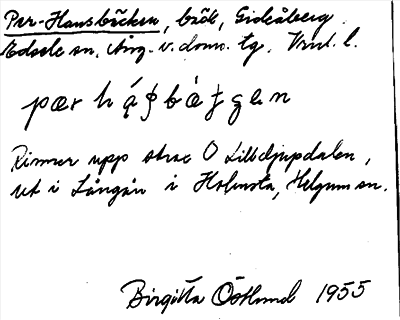 Per-Hansbäcken, bäck, Gideåberg.
Edsele sn. Ång. v. doms. tg. Vrml. l.
Rinner upp strax O Lilldjupdalen,
ut i Långån i Holmsta, Helgum sn.
Birgitta Östlund 1955